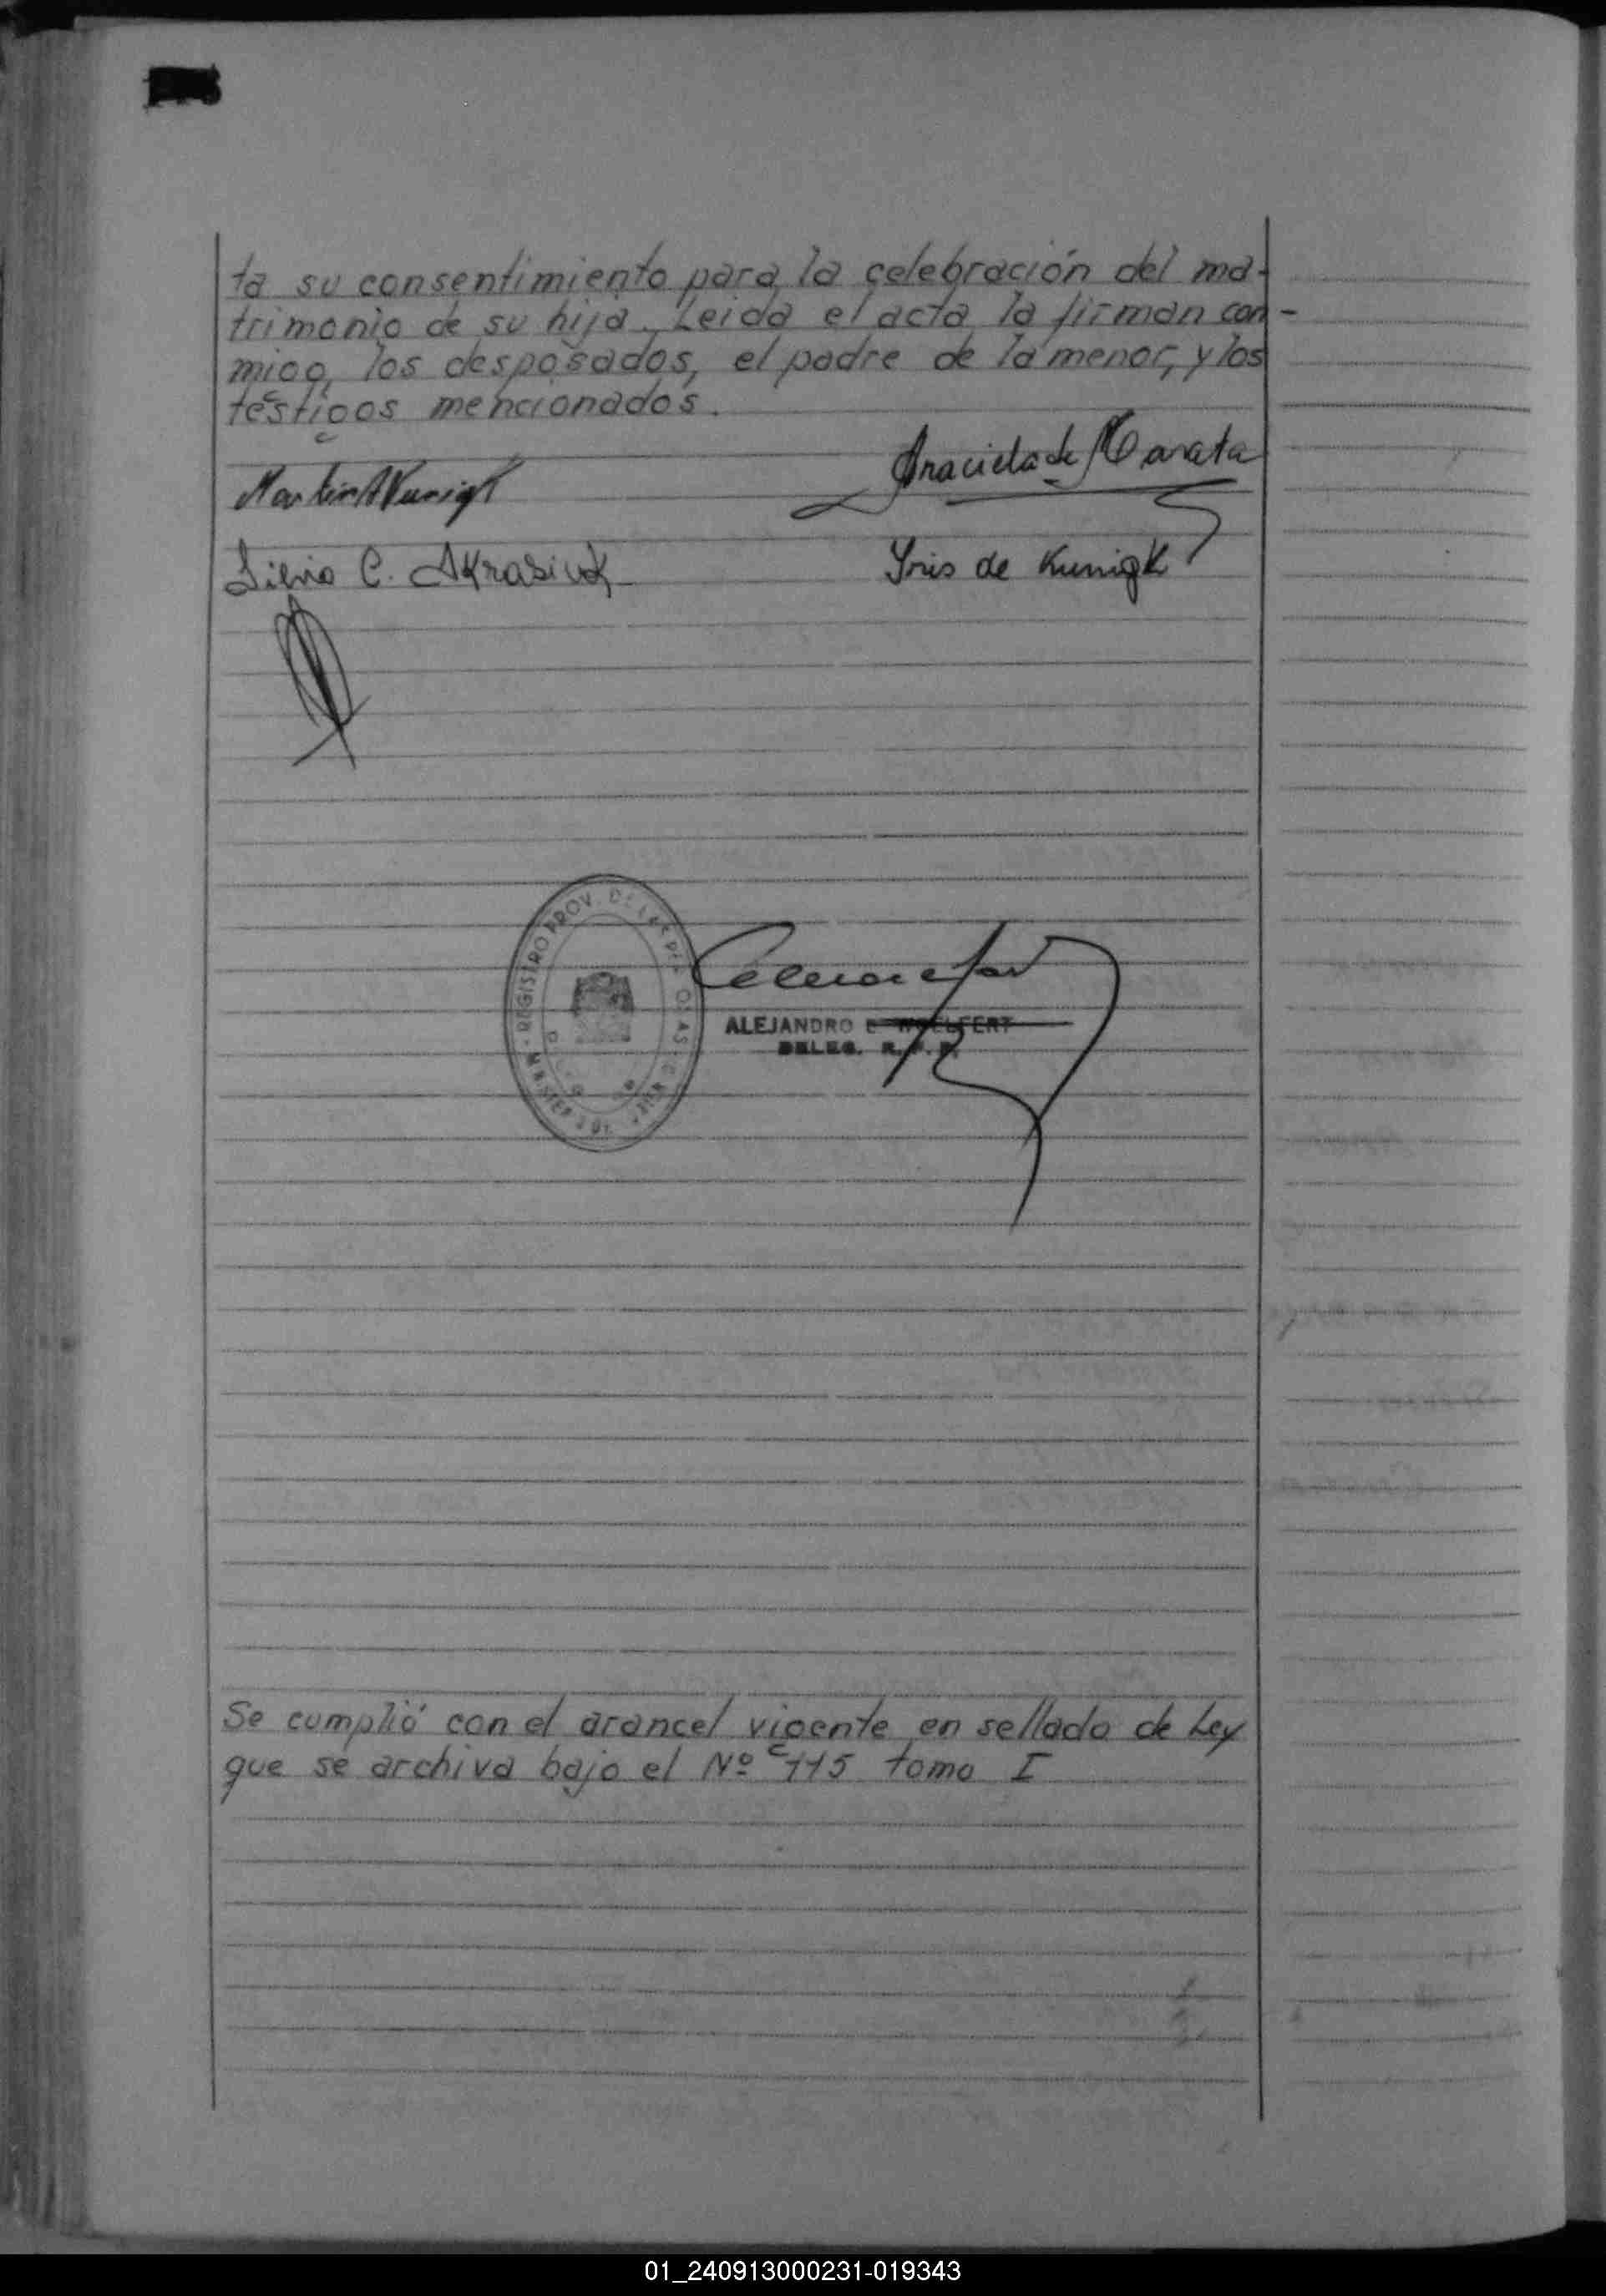 ta su consentimiento para la celebración del ma-
trimonio de su hija. Leida el acta la firman con-
migo, los desposados, el padre de la menor, y los
testigos mencionados.
Graciela de Marata
Martin A Kunigk
Silvio C. Akrasiuk
Yris de Kunigk
REGISTRO PROV. DE LAS PER
ALEJANDRO E WOELFERT
DELEG. R. P. P.
Se cumplió con el arancel vigente en sellado de Ley
que se archiva bajo el Nº 115 tomo I
01_240913000231-019343